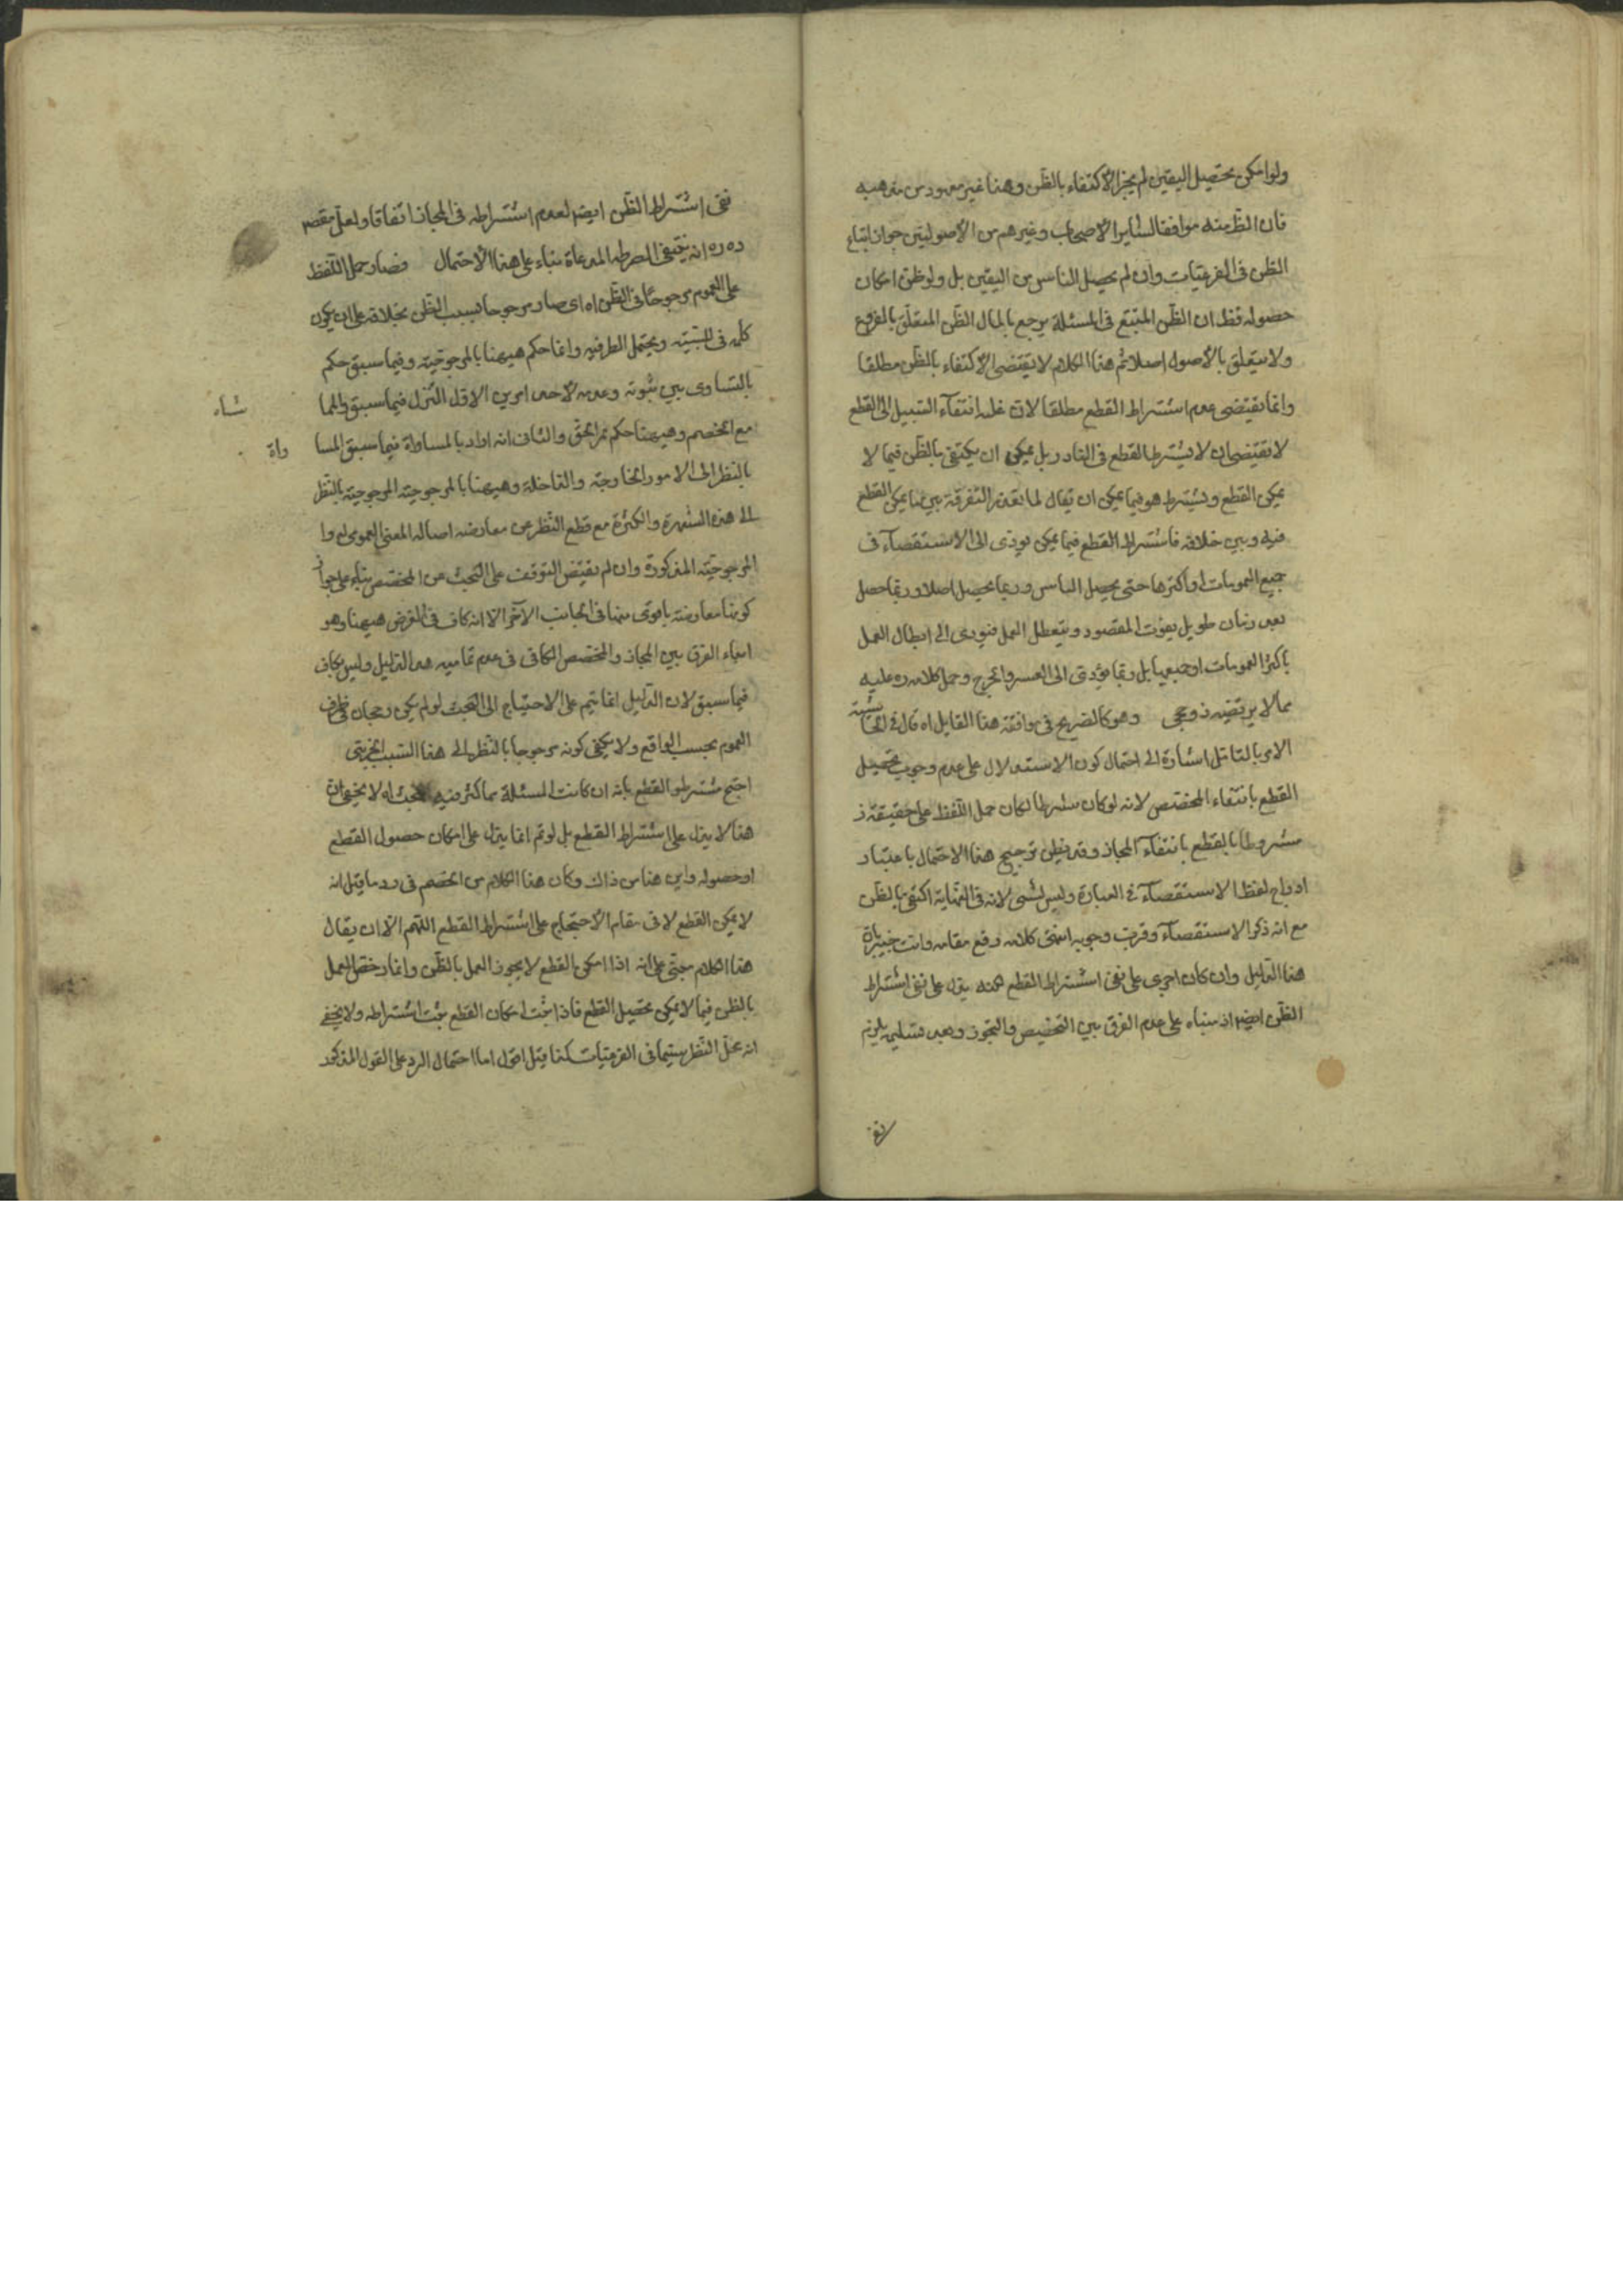 ولو امكن تحصيل اليقين لم يجز الاكتفاء بالظن وهذا غير معهود من مذهبه
فان الظ منه موافقا لساير الاصحاب وغيرهم من الاصوليين جواز اتباع
الظن فى الفرعيات وان لم يحصل الياس من اليقين بل ولو ظن امكان
حصوله فظ ان الظن المتبع فى المسئلة يرجع بالمال الظن المتعلق بالفروع
ولا يتعلق بالاصول اصلا ثم هذا الكلام لا يقتضى الاكتفاء بالظن مطلقا
وانما يقتضى عدم اشتراط القطع مطلقا لان غلبه انتفآء السبيل الى القطع
لا تقتضى ان لا يشترط القطع فى النادر بل يمكن ان يكتفى بالظن فيما لا
يمكن القطع ويشترط هو فيما يمكن ان يقال لما تعذر التفرقة بين ما يمكن القطع
فيه وبين خلافه فاشتراط القطع فيما يمكن يؤدى الى الاستقصآء فى
جميع العمومات او اكثرها حتى يحصل الياس وربما يحصل اصلا وربما حصل
بعد زمان طويل يفوت المقصود ويتعطل العمل فيودى الى ابطال العمل
باكثر العمومات او جميعها بل ربما يؤدى الى العسر والحرج وحمل كلامه ره عليه
مما لا يرتضيه ذو حجى وهو كالصريح فى موافقة هذا القايل اه قال فى الحاشية
الامر بالتامل اشارة الى احتمال كون الاستدلال على عدم وجوب تحصيل
القطع بانتفاء المخصص لانه لو كان شرطا لكان حمل اللفظ على حقيقة
مشروطا بالقطع بانتفآء المجاز وقد يظن ترجيح هذا الاحتمال باعتبار
ادراج لفظ الاستقصآء فى العبارة وليس بشى لانه فى النهاية اكتفى بالظن
مع انه ذكر الاستقصآء وقرب وجوبه انتهى كلامه رفع مقامه وانت خبير بان
هذا الدليل وان كان اجرى على نفى اشتراط القطع لكنه يدل على نفى اشتراط
الظن ايضا اذ مبناه على عدم الفرق بين التخصيص والتجوز وبعد تسليمه يلزم
نفى
نفى اشتراط الظن ايضا لعدم اشتراطه فى المجاز اتفاقا ولعل مقصو
ده ره انه بناء على هذا الاحتمال فصار حمل اللفظ
على العموم مرجوحا فى الظن اه اى صار مرجوحا بسبب الظن بخلافه على ان يكون
كلمه فى للسببيه ويحتمل الظرفيه وانما حكم هيهنا بالمرجوحيه وفيما سبق حكم
بالتساوى بين ثبوته وعدمه لاحد امرين الاول التنزل فيما سبق والمما
شاه
مع الخصم وهيهنا حكم بمر الحق والثانى انه اراد بالمساواة فيما سبق المسا
واة
بالنظر الى الامور الخارجة والداخلة وهيهنا بالمرجوحيه المرجوحيه بالنظر
الى هذه الشهرة والكثرة مع قطع النظر عن معارضه اصاله المعنى العموى له وا
المرجوحيه المذكورة وان لم يقتض التوقف على البحث عن المخصص بناء على جواز
كونها معارضة باقوى منها فى الجانب الآخر الا انه كاف فى الغرض هيهنا وهو
ابداء الفرق بين المجاز والمخصص الكافى فى عدم تماميه هذا الدليل وليس بكاف
فيما سبق لان الدليل انما يتم على الاحتياج الى البحث لو لم يكن رجحان فى طرف
العموم بحسب الواقع ولا يكفى كونه مرجوحا بالنظر الى هذا السبب الجزيى
احتج مشترطو القطع بانه ان كانت المسئلة مما كثر فيه البحث اه لا يخفى ان
هذا لا يدل على اشتراط القطع بل لو تم انما يدل على امكان حصول القطع
او حصوله واين هذا من ذاك وكان هذا الكلام من الخصم فى رد ما قيل انه
لا يمكن القطع لا فى مقام الاحتجاج على اشتراط القطع اللهم الا ان يقال
هذا الكلام مبتى على انه اذا امكن القطع لا يجوز العمل بالظن وانما رخص العمل
بالظن فيما لا يمكن تحصيل القطع فاذا ثبت امكان القطع ثبت اشتراطه ولا يخفى
انه محل النظر سيما فى الفرعيات كذا قيل اقول اما احتمال الرد على القول المذكور